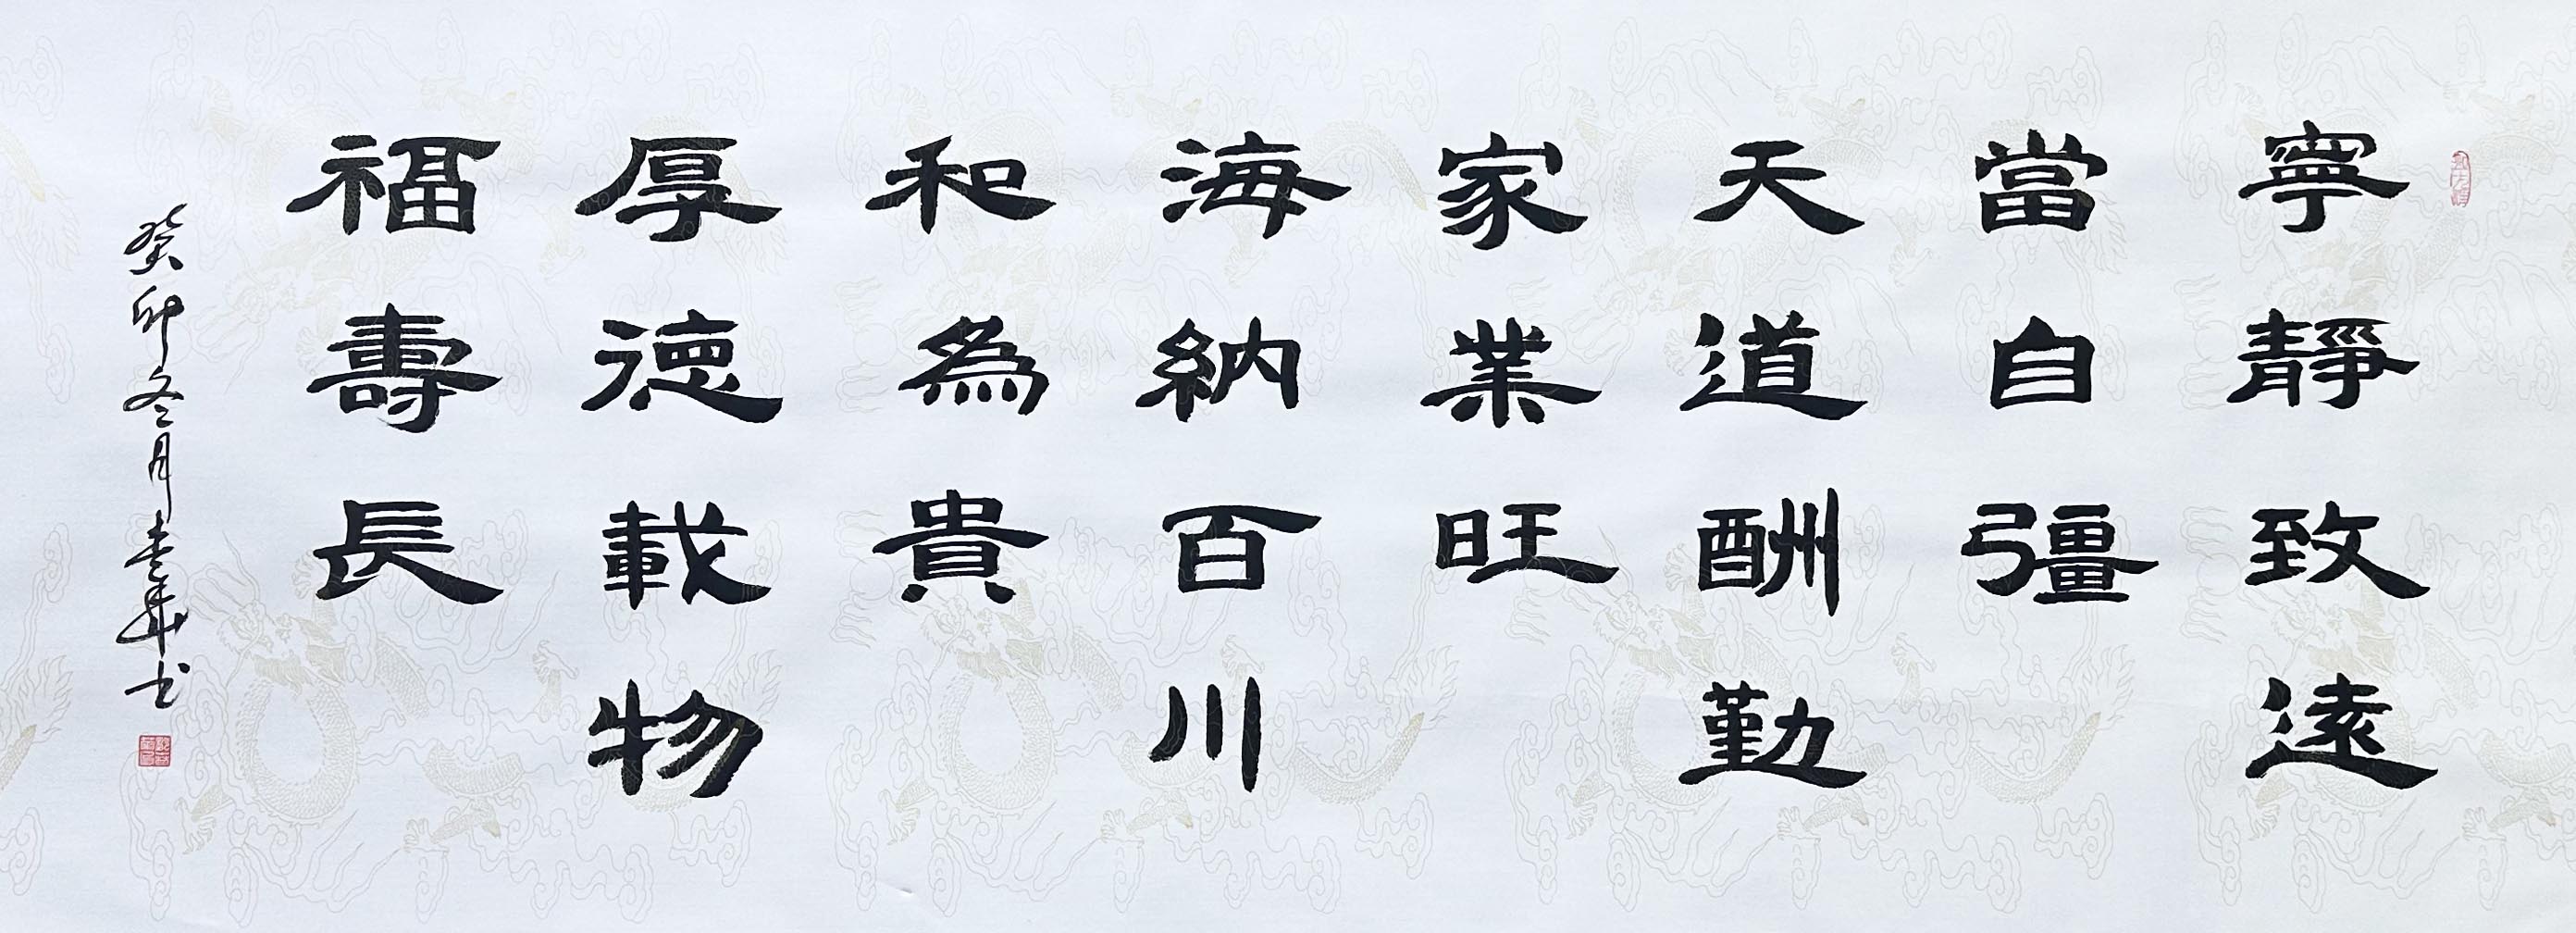 寧靜致遠
當自彊
天道酬勤
家業旺
海納百川
和為貴
厚德載物
福壽長
癸卯冬月
書